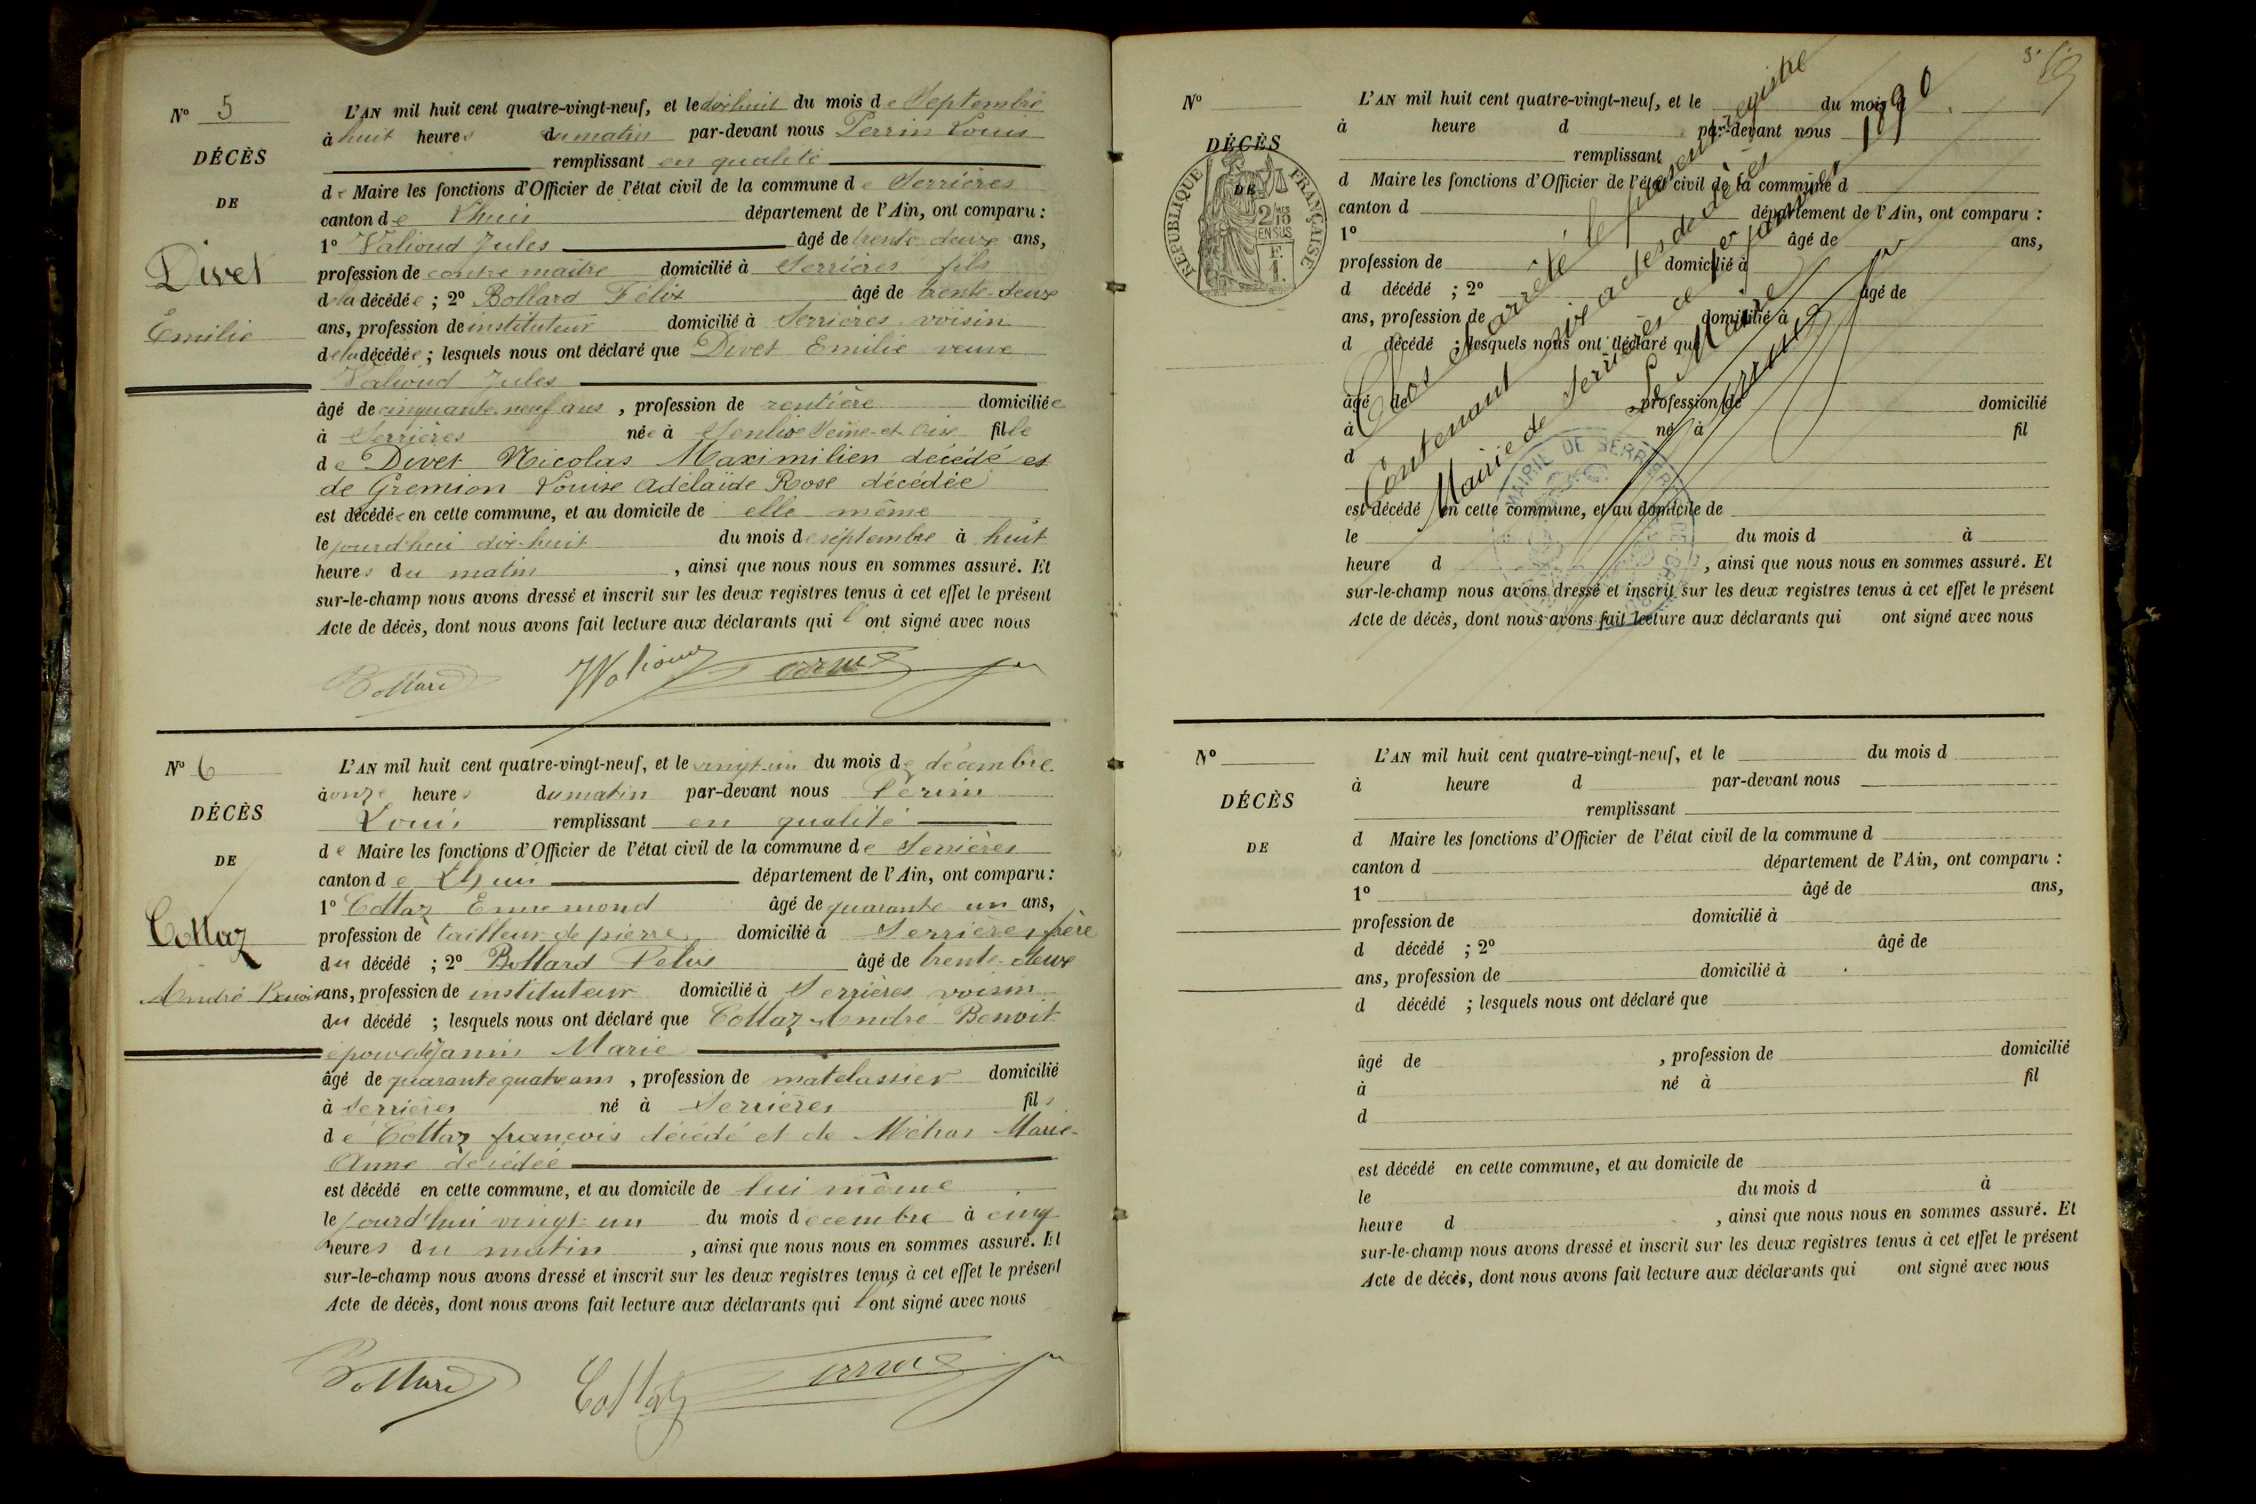 N° 5
DÉCÈS
DE
Divet
Emilie
L'AN mil huit cent quatre-vingt-neuf, et le dix huit du mois de Septembre
à huit heures du matin par-devant nous Perrin Louis
remplissant en qualité
de Maire les fonctions d'Officier de l'état civil de la commune de Serrières
canton de Lhuis département de l'Ain, ont comparu :
1° Valioud Jules âgé de trente-deux ans,
profession de contre maître domicilié à Serrières fils
de la décédée ; 2° Bollard Félix âgé de trente-deux
ans, profession de instituteur domicilié à Serrières voisin
de la décédée ; lesquels nous ont déclaré que Divet Emilie veuve
Valioud Jules
âgé de cinquante-neuf ans , profession de rentière domiciliée
à Serrières née à Senlise Seine-et-Oise fille
de Divet Nicolas Maximilien décédé et
de Gremion Louise Adélaïde Rose décédée
est décédée en cette commune, et au domicile de elle même
le jourd'hui dix-huit du mois de septembre à huit
heures du matin , ainsi que nous nous en sommes assuré. Et
sur-le-champ nous avons dressé et inscrit sur les deux registres tenus à cet effet le présent
Acte de décès, dont nous avons fait lecture aux déclarants qui l'ont signé avec nous
Bollard Valioud Perrin
N° 6
DÉCÈS
DE
Cottaz
André Benoit
L'AN mil huit cent quatre-vingt-neuf, et le vingt-un du mois de décembre
à onze heures du matin par-devant nous Perrin
Louis remplissant en qualité
de Maire les fonctions d'Officier de l'état civil de la commune de Serrières
canton de Lhuis département de l'Ain, ont comparu :
1° Cottaz Ennemond âgé de quarante un ans,
profession de tailleur de pierre domicilié à Serrières frère
du décédé ; 2° Bollard Félix âgé de trente-deux
ans, profession de instituteur domicilié à Serrières voisin
du décédé ; lesquels nous ont déclaré que Cottaz André Benoit
époux de Janin Marie
âgé de quarante quatre ans , profession de matelassier domicilié
à Serrières né à Serrières fils
de Cottaz françois décédé et de Métras Marie-
Anne décédée
est décédé en cette commune, et au domicile de lui même
le jourd'hui vingt-un du mois decembre à cinq
heures du matin , ainsi que nous nous en sommes assuré. Et
sur-le-champ nous avons dressé et inscrit sur les deux registres tenus à cet effet le présent
Acte de décès, dont nous avons fait lecture aux déclarants qui l'ont signé avec nous
Bollard Cottaz Perrin
N°
DÉCÈS
DE
RÉPUBLIQUE FRANÇAISE
2/10 EN SUS
F.
1.
L'AN mil huit cent quatre-vingt-neuf, et le du mois d
à heure d par-devant nous
remplissant
d Maire les fonctions d'Officier de l'état civil de la commune d
canton d département de l'Ain, ont comparu :
1° âgé de ans,
profession de domicilié à
d décédé ; 2° âgé de
ans, profession de domicilié à
d décédé ; lesquels nous ont déclaré que
âgé de , profession de domicilié
à né à fil
d
est décédé en cette commune, et au domicile de
le du mois d à
heure d , ainsi que nous nous en sommes assuré. Et
sur-le-champ nous avons dressé et inscrit sur les deux registres tenus à cet effet le présent
Acte de décès, dont nous avons fait lecture aux déclarants qui ont signé avec nous
Clos et arrêté le présent registre
Contenant six actes de décès
Mairie de Serrières ce 1er janvier 1890
Le Maire
Perrin
MAIRIE DE SERRIÈRES
N°
DÉCÈS
DE
L'AN mil huit cent quatre-vingt-neuf, et le du mois d
à heure d par-devant nous
remplissant
d Maire les fonctions d'Officier de l'état civil de la commune d
canton d département de l'Ain, ont comparu :
1° âgé de ans,
profession de domicilié à
d décédé ; 2° âgé de
ans, profession de domicilié à
d décédé ; lesquels nous ont déclaré que
âgé de , profession de domicilié
à né à fil
d
est décédé en cette commune, et au domicile de
le du mois d à
heure d , ainsi que nous nous en sommes assuré. Et
sur-le-champ nous avons dressé et inscrit sur les deux registres tenus à cet effet le présent
Acte de décès, dont nous avons fait lecture aux déclarants qui ont signé avec nous